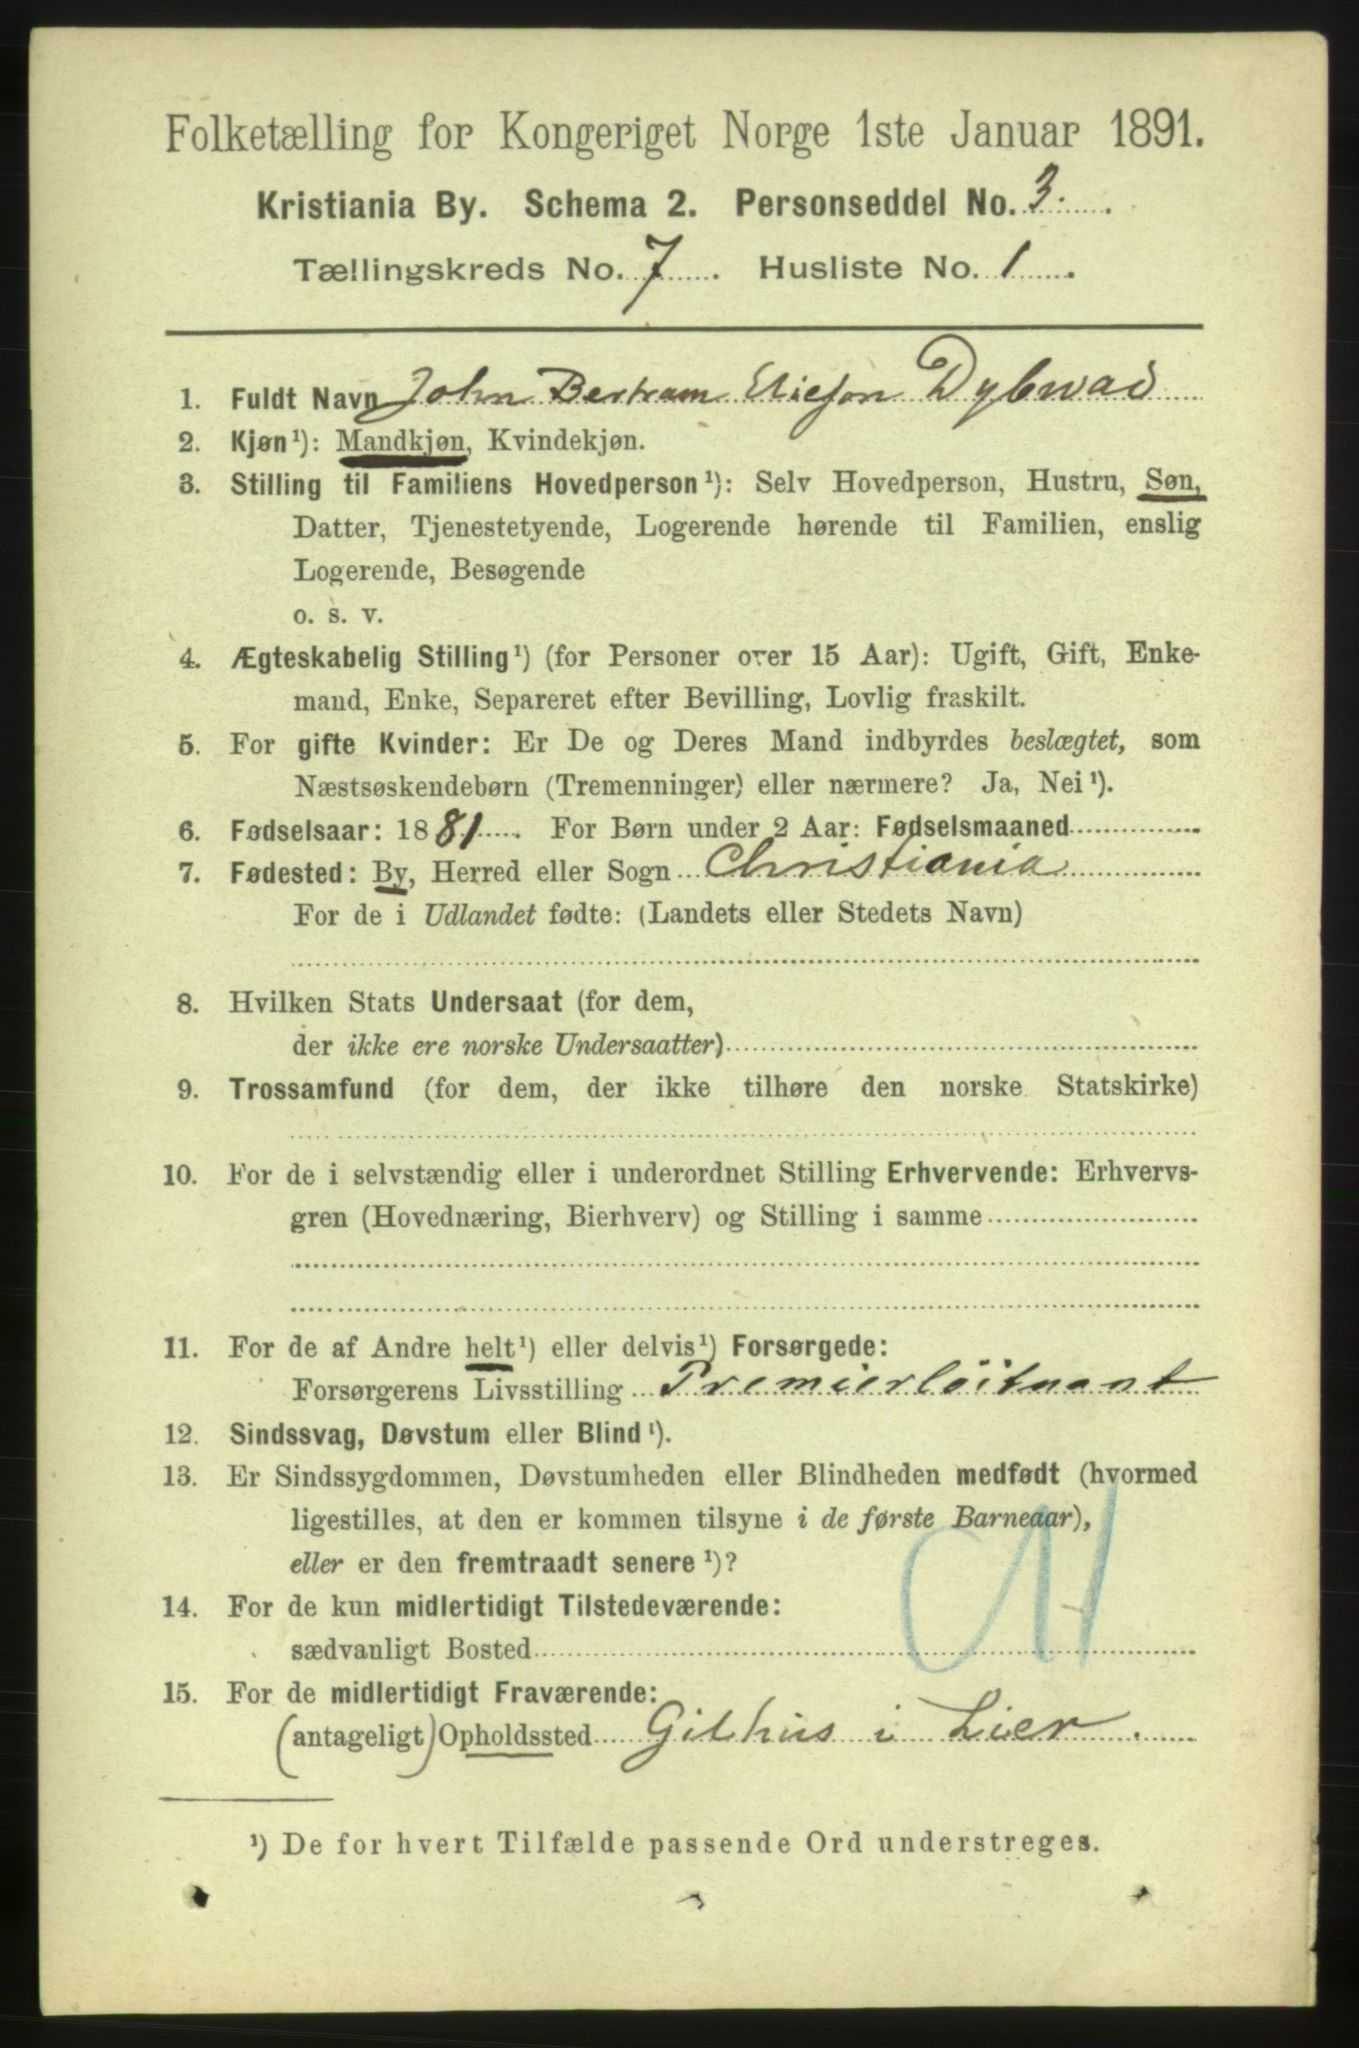 Folketælling for Kongeriget Norge 1ste Januar 1891.
Kristiania By. Schema 2. Personseddel No. 3.
Tællingskreds No. 7. Husliste No. 1.
1. Fuldt Navn John Bertram Dybwad
2. Kjøn¹): Mandkjøn, Kvindekjøn.
3. Stilling til Familiens Hovedperson¹): Selv Hovedperson, Hustru, Søn,
Datter, Tjenestetyende, Logerende hørende til Familien, enslig
Logerende, Besøgende
o. s. v.
4. Ægteskabelig Stilling¹) (for Personer over 15 Aar): Ugift, Gift, Enke-
mand, Enke, Separeret efter Bevilling, Lovlig fraskilt.
5. For gifte Kvinder: Er De og Deres Mand indbyrdes beslægtet, som
Næstsøskendebørn (Tremenninger) eller nærmere? Ja, Nei¹).
6. Fødselsaar: 1881. For Børn under 2 Aar: Fødselsmaaned
7. Fødested: By, Herred eller Sogn Christiania
For de i Udlandet fødte: (Landets eller Stedets Navn)
8. Hvilken Stats Undersaat (for dem,
der ikke ere norske Undersaatter)
9. Trossamfund (for dem, der ikke tilhøre den norske Statskirke)
10. For de i selvstændig eller i underordnet Stilling Erhvervende: Erhvervs-
gren (Hovednæring, Bierhverv) og Stilling i samme
11. For de af Andre helt¹) eller delvis¹) Forsørgede:
Forsørgerens Livsstilling Premierløitnant
12. Sindssvag, Døvstum eller Blind¹).
13. Er Sindssygdommen, Døvstumheden eller Blindheden medfødt (hvormed
ligestilles, at den er kommen tilsyne i de første Barneaar),
eller er den fremtraadt senere¹)?
14. For de kun midlertidigt Tilstedeværende:
sædvanligt Bosted
15. For de midlertidigt Fraværende:
(antageligt) Opholdssted Gilhus i Lier.
¹) De for hvert Tilfælde passende Ord understreges.